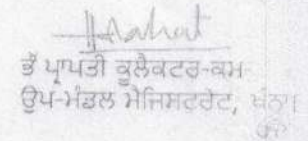 ਭੌਂ ਪ੍ਰਾਪਤੀ ਕੂਲੈਕਟਰ-ਕਮ
ਉਪ-ਮੰਡਲ ਮੈਜਿਸਟਰੇਟ, ਖੰਨਾ।